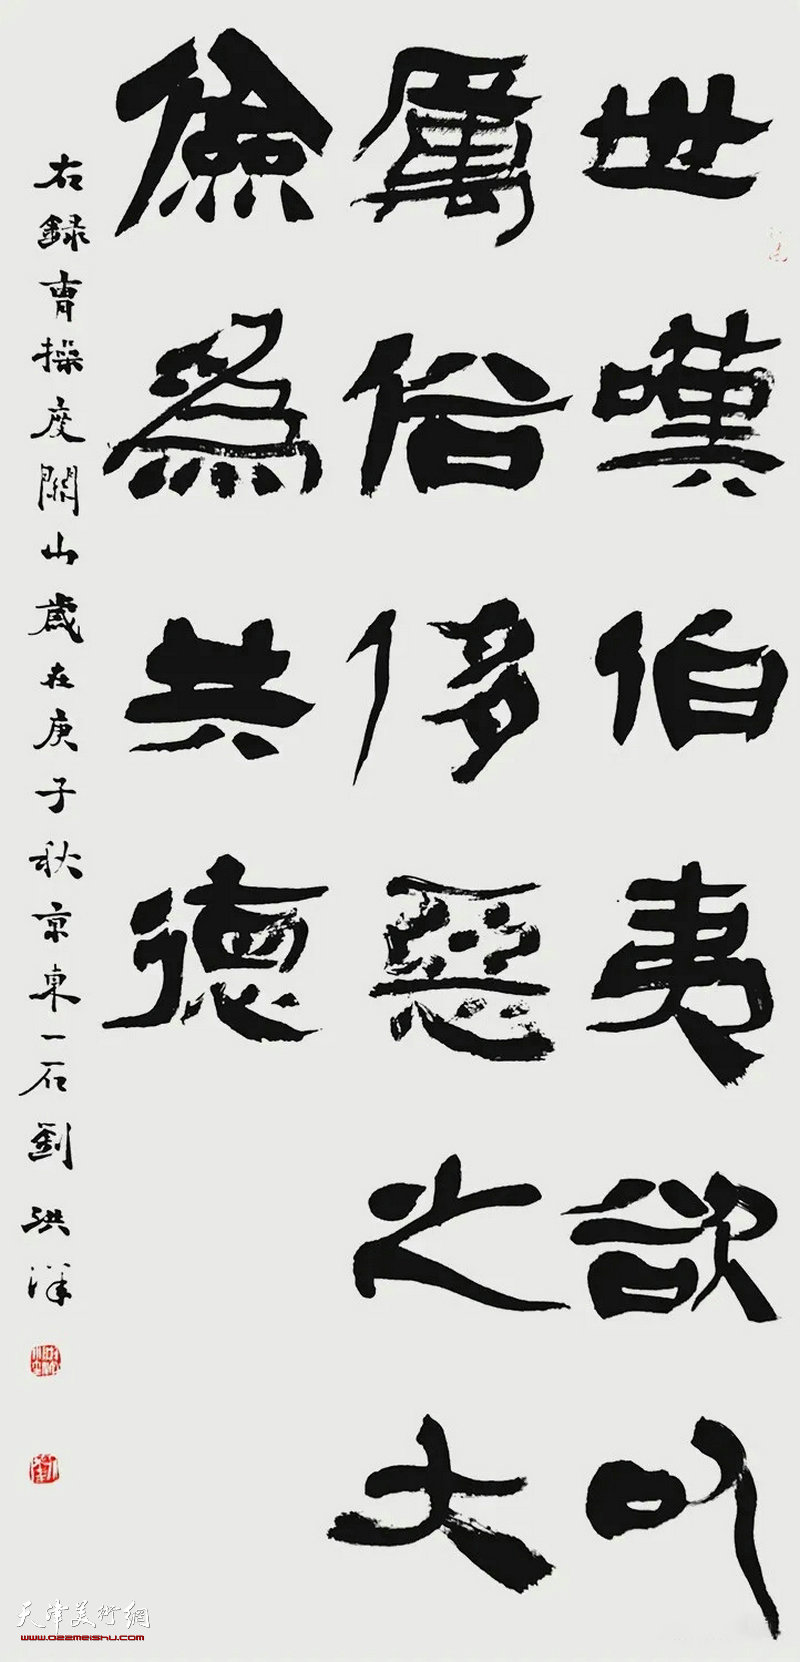 世嘆伯夷欲以
厲俗侈惡之大
儉為共德
右録曹操度關山歲在庚子秋京東一石劉洪洋
天津美術網
www.022meishu.com